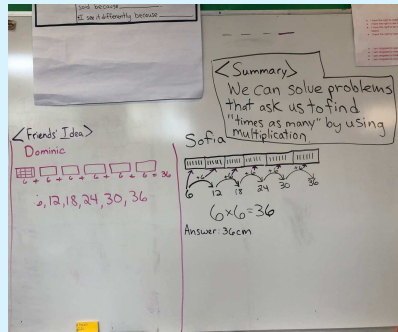 said because
"I see it differently because
<Summary>
We can solve problems
that ask us to find
"times as many" by using
multiplication
<Friends' Idea>
Dominic
6 + 6 + 6 + 6 + 6 + 6 = 36
6,12,18,24,30,36
Sofia
+6 +6 +6 +6 +6
6 12 18 24 30 36
6×6=36
Answer: 36cm